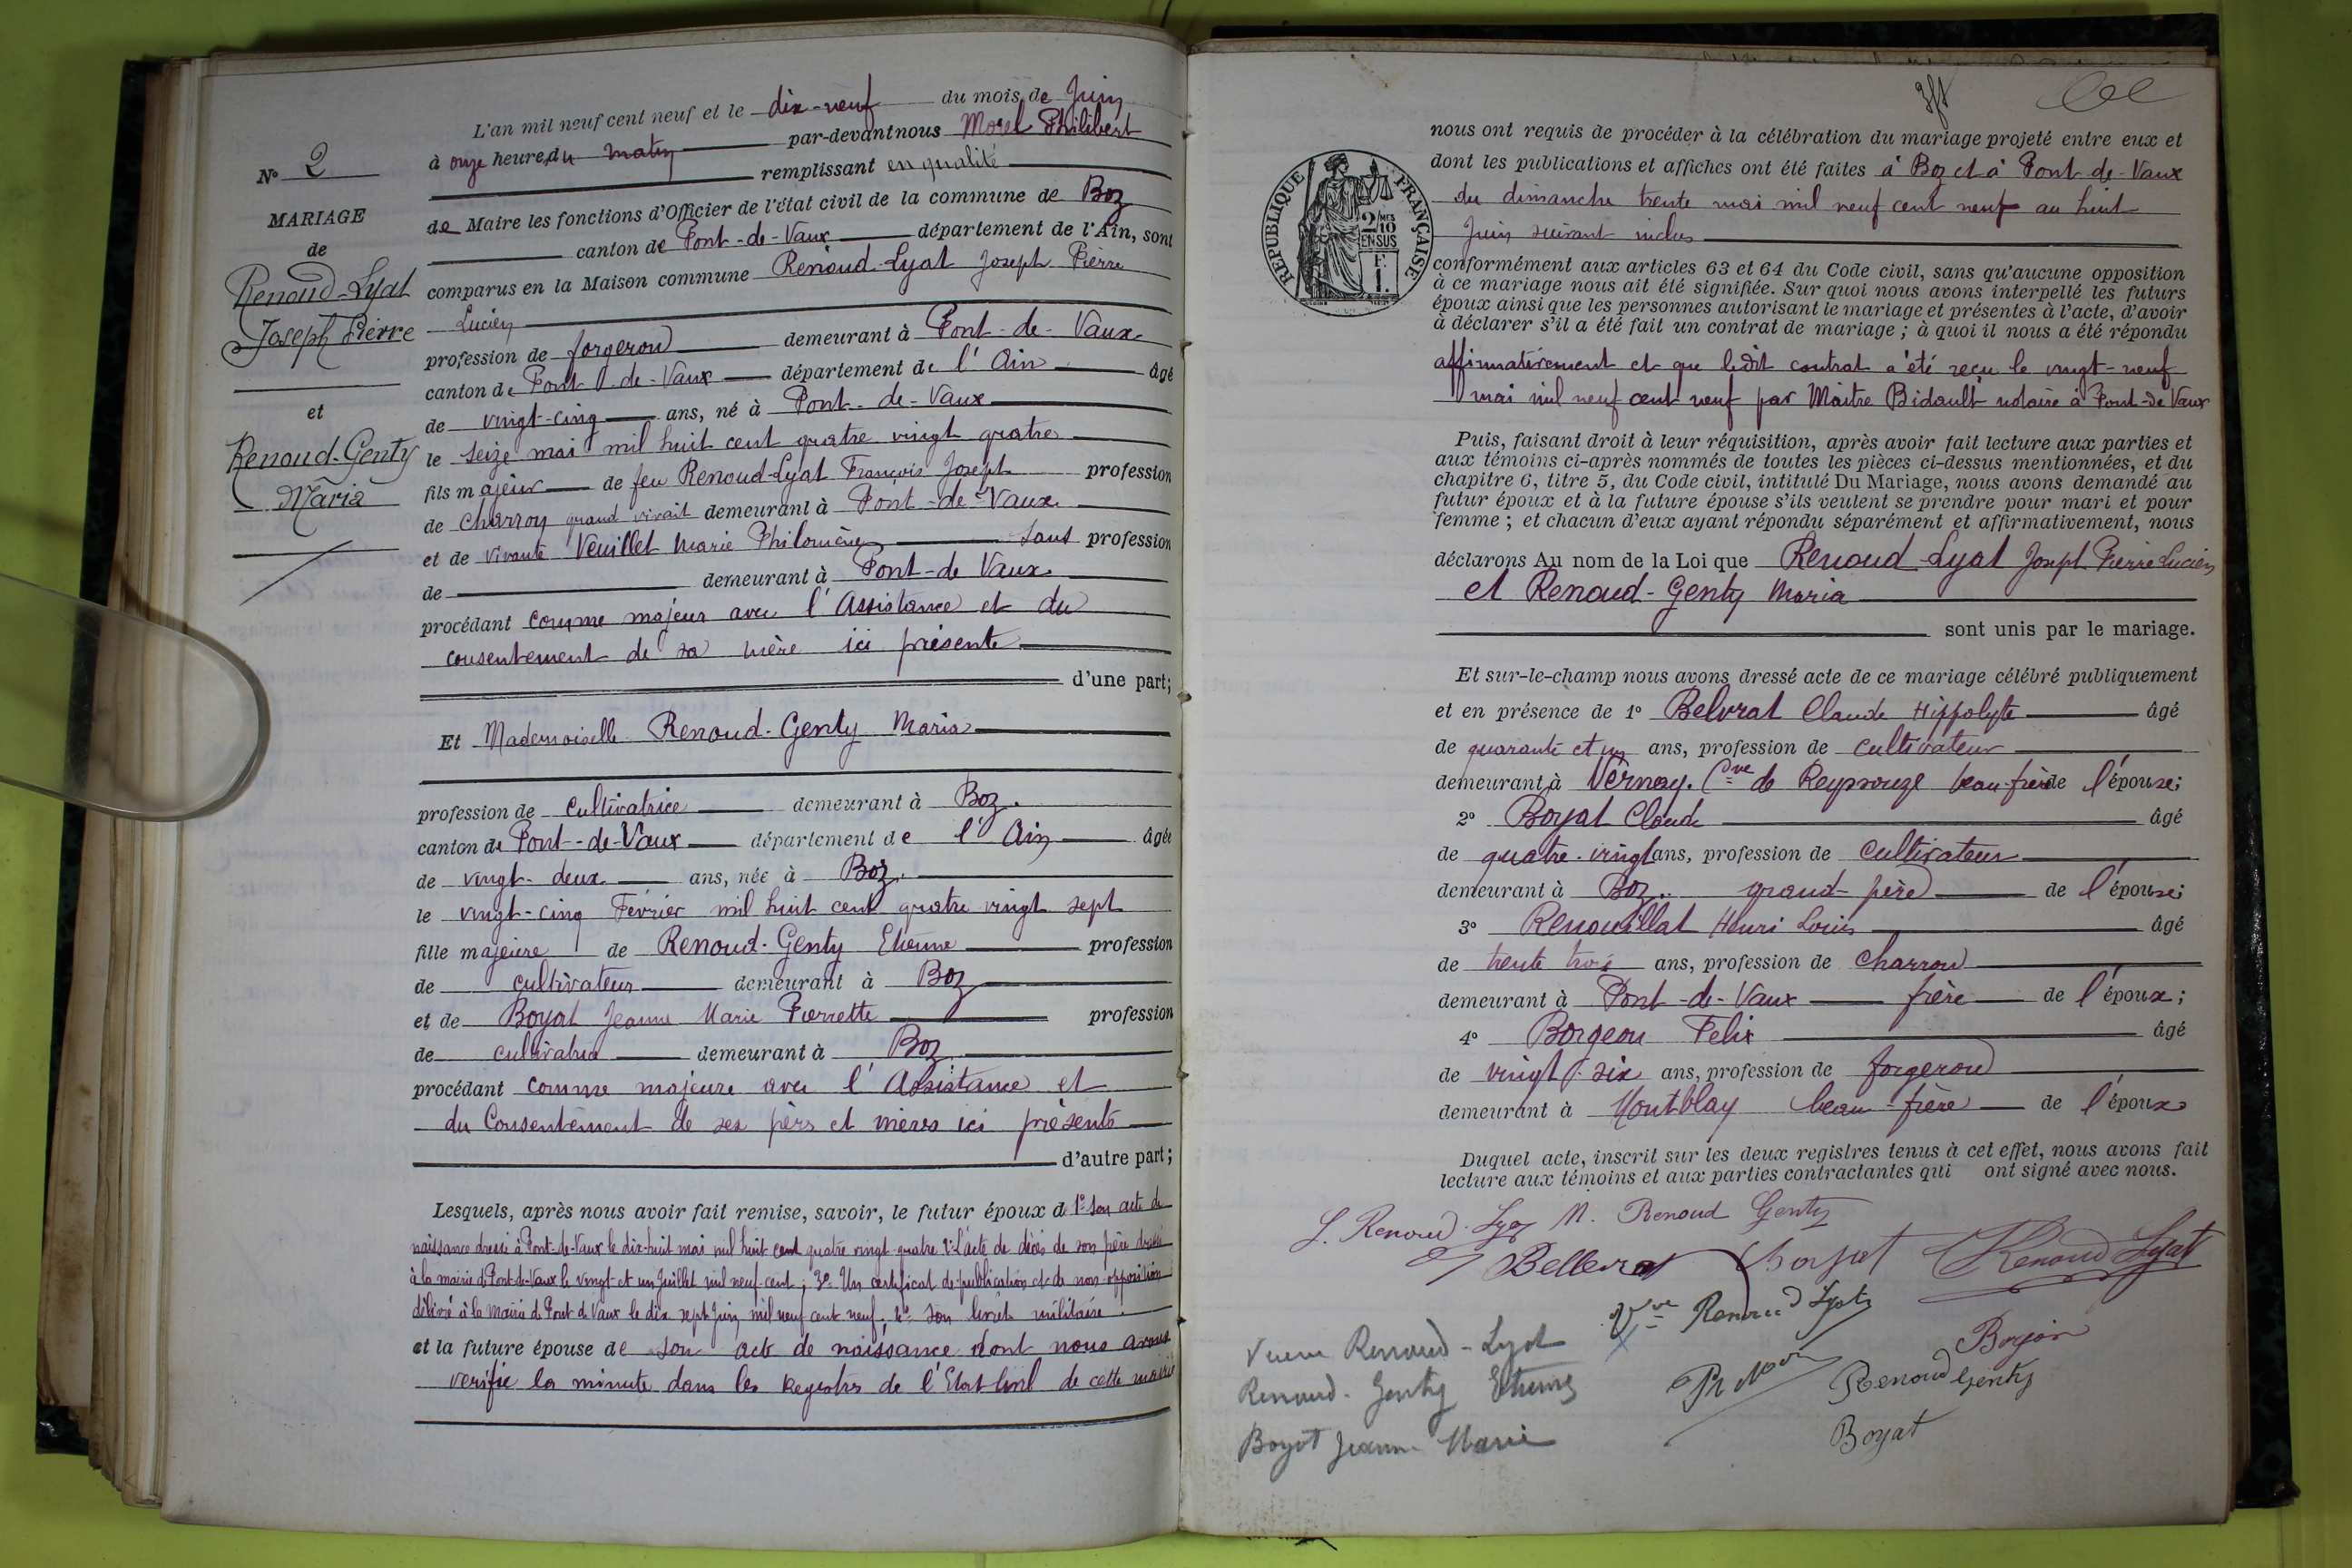 N° 2
MARIAGE
de
Renoud-Lyat
Joseph Pierre
et
Renoud-Genty
Maria
L'an mil neuf cent neuf et le dix-neuf du mois de Juin
à onze heures du matin par-devant nous Morel Philibert
remplissant en qualité
de Maire les fonctions d'Officier de l'état civil de la commune de Boz
canton de Pont-de-Vaux département de l'Ain, sont
comparus en la Maison commune Renoud-Lyat Joseph Pierre
Lucien
profession de forgeron demeurant à Pont-de-Vaux
canton de Pont-de-Vaux département de l'Ain âgé
de vingt-cinq ans, né à Pont-de-Vaux
le seize mai mil huit cent quatre vingt quatre
fils majeur de feu Renoud-Lyat François Joseph profession
de Charron quand vivait demeurant à Pont-de-Vaux
et de vivante Veuillet Marie Philomène sans profession
de demeurant à Pont-de Vaux
procédant comme majeur avec l'Assistance et du
consentement de sa mère ici présente
d'une part;
Et Mademoiselle Renoud-Genty Maria
profession de cultivatrice demeurant à Boz.
canton de Pont-de-Vaux département de l'Ain âgée
de vingt-deux ans, née à Boz.
le vingt-cinq Février mil huit cent quatre vingt sept
fille majeure de Renoud-Genty Etienne profession
de cultivateur demeurant à Boz
et de Boyat Jeanne Marie Pierrette profession
de demeurant à Boz
procédant comme majeure avec l'Assistance et
du Consentement de ses pères et mères ici présents
d'autre part;
Lesquels, après nous avoir fait remise, savoir, le futur époux d 1° son acte de
naissance dressé à Pont-de-Vaux le dix-huit mai mil huit cent quatre vingt quatre 2° L'acte de décès de son père dressé
à la mairie de Pont-de-Vaux le vingt-et un Juillet mil neuf-cent; 3° Un certificat de publication et de non-opposition
délivré à la Mairie de Pont de Vaux le dix sept Juin mil neuf cent neuf; 4° son livret militaire.
et la future épouse de son acte de naissance dont nous avons
vérifié la minute dans les Registres de l'Etat Civil de cette mairie
RÉPUBLIQUE FRANÇAISE
2/10
EN SUS
F.
1.
nous ont requis de procéder à la célébration du mariage projeté entre eux et
dont les publications et affiches ont été faites à Boz et à Pont-de-Vaux
du dimanche trente mai mil neuf cent neuf au huit
Juin suivant inclus
conformément aux articles 63 et 64 du Code civil, sans qu'aucune opposition
à ce mariage nous ait été signifiée. Sur quoi nous avons interpellé les futurs
époux ainsi que les personnes autorisant le mariage et présentes à l'acte, d'avoir
à déclarer s'il a été fait un contrat de mariage; à quoi il nous a été répondu
affirmativement et que ledit contrat a été reçu le vingt-neuf
mai mil neuf cent neuf par Maitre Bidault notaire à Pont-de Vaux
Puis, faisant droit à leur réquisition, après avoir fait lecture aux parties et
aux témoins ci-après nommés de toutes les pièces ci-dessus mentionnées, et du
chapitre 6, titre 5, du Code civil, intitulé Du Mariage, nous avons demandé au
futur époux et à la future épouse s'ils veulent se prendre pour mari et pour
femme; et chacun d'eux ayant répondu séparément et affirmativement, nous
déclarons Au nom de la Loi que Renoud-Lyat Joseph Pierre Lucien
et Renoud-Genty Maria
sont unis par le mariage.
Et sur-le-champ nous avons dressé acte de ce mariage célébré publiquement
et en présence de 1° Belvrat Claude Hippolyte âgé
de quarante et un ans, profession de cultivateur
demeurant à Vernay. Cne de Reyssouze beau-frère de l'épouse;
2° Boyat Claude âgé
de quatre-vingt ans, profession de cultivateur
demeurant à Boz. grand-père de l'épouse;
3° Renouillat Henri Louis âgé
de trente trois ans, profession de Charron
demeurant à Pont-de-Vaux frère de l'époux;
4° Borgeon Felix âgé
de vingt-six ans, profession de forgeron
demeurant à Montblay beau-frère de l'époux
Duquel acte, inscrit sur les deux registres tenus à cet effet, nous avons fait
lecture aux témoins et aux parties contractantes qui ont signé avec nous.
L. Renoud-Lyat M. Renoud Genty
Bellevrat Renoud Lyat
Vve Renoud Lyat
Veuve Renoud-Lyat
Renoud-Genty Etienne
Renoud Genty
Boyat Jeanne-Marie
Boyat